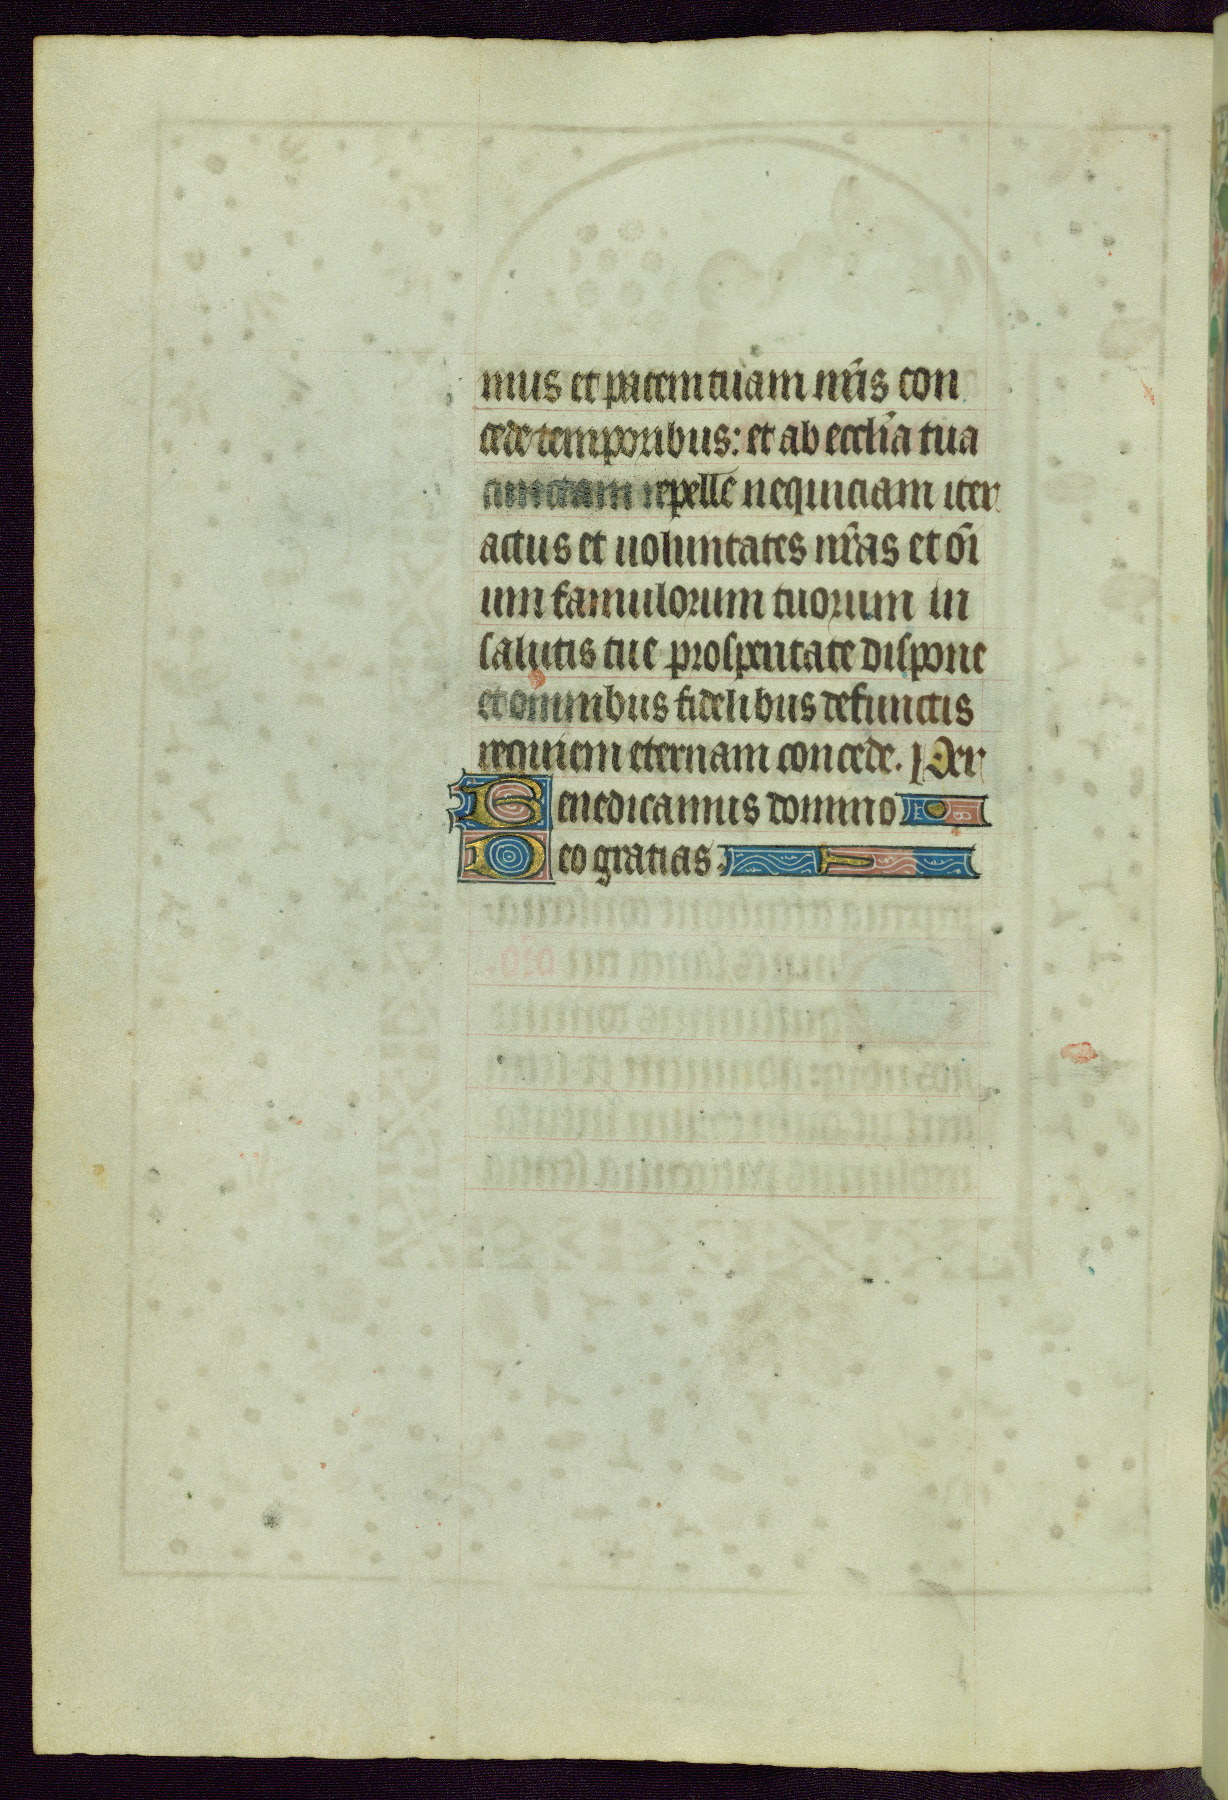 mus et pacem tuam nr̄is con
cede temporibus: et ab eccl̄ia tua
cunctam repelle nequiciam iter
actus et uoluntates nr̄as et om̄i
um famulorum tuorum in
salutis tue prosperitate dispone
et omnibus fidelibus defunctis
requiem eternam concede. Per
Benedicamus domino
Deo gratias.